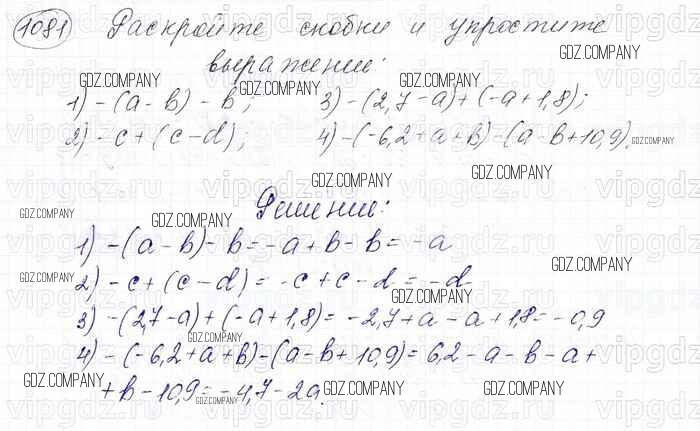 1081 Раскройте скобки и упростите
выражение:
1) -(a-b)-b; 3) -(2,7-a)+(-a+1,8);
2) -c+(c-d); 4) -(-6,2+a+b)-(a-b+10,9).
Решение:
1) -(a-b)-b=-a+b-b=-a
2) -c+(c-d)=-c+c-d=-d
3) -(2,7-a)+(-a+1,8)=-2,7+a-a+1,8=-0,9
4) -(-6,2+a+b)-(a-b+10,9)=6,2-a-b-a+
+b-10,9=-4,7-2a.